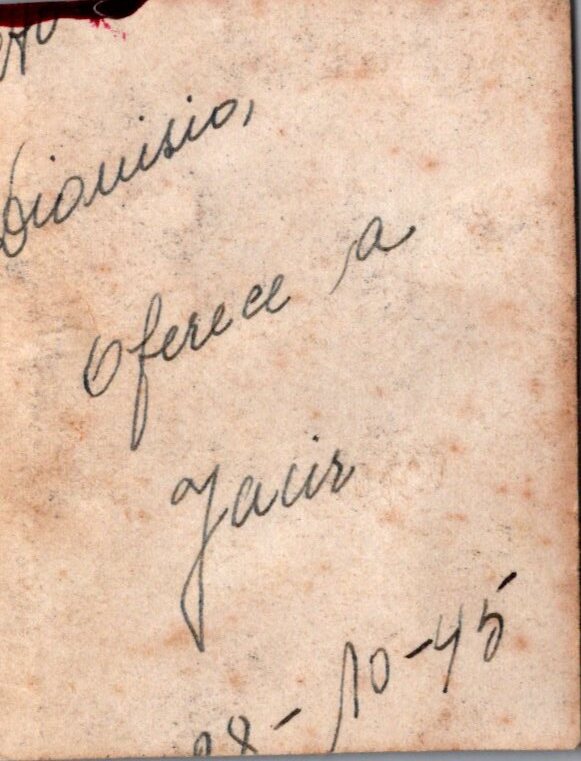 Ao
Dionisio,
Oferece a
Jacir
28-10-45